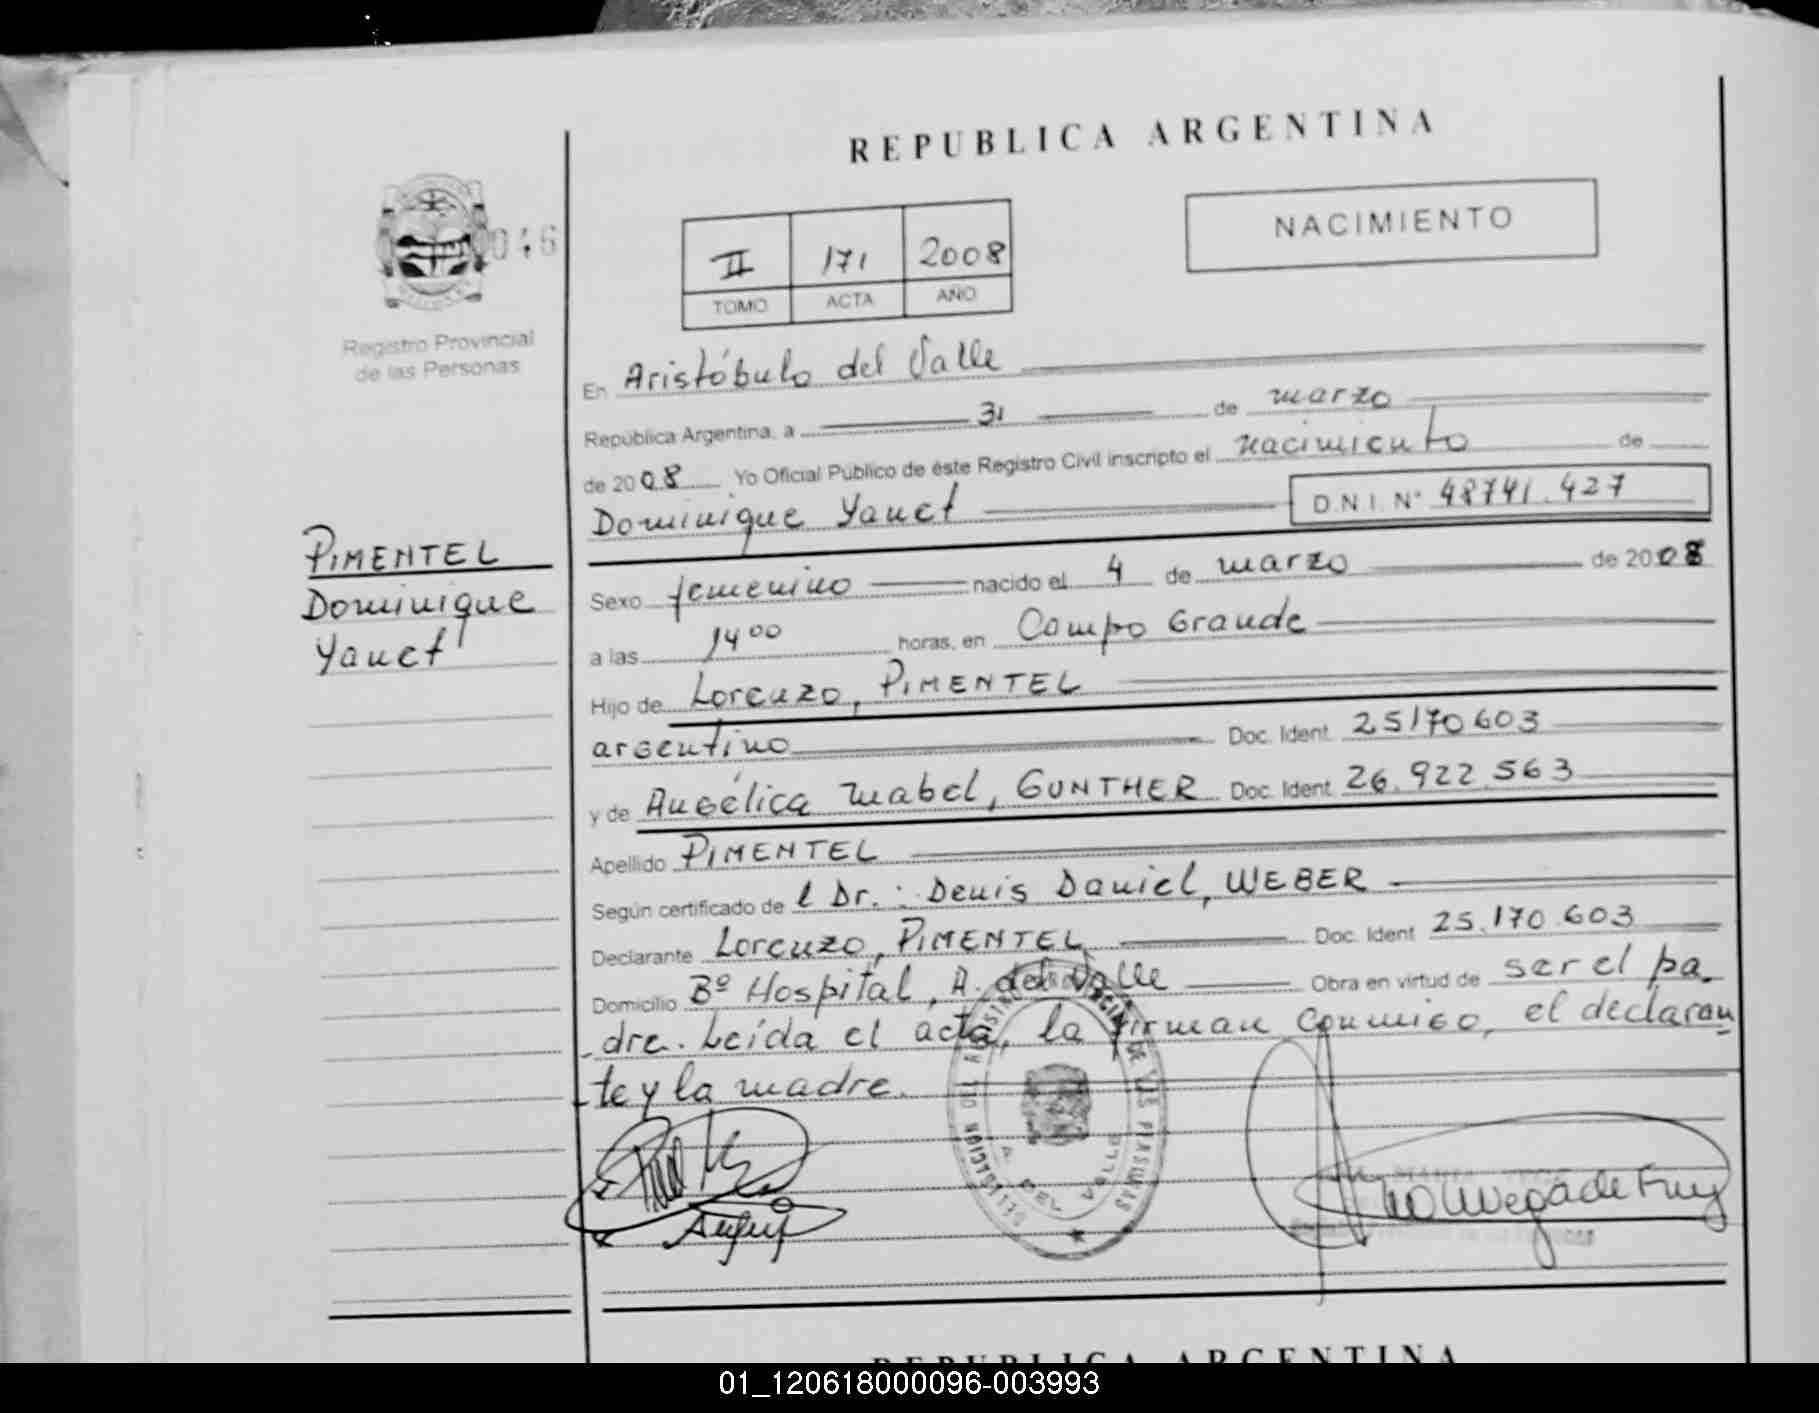 REPUBLICA ARGENTINA
NACIMIENTO
II 171 2008
TOMO ACTA AÑO
Registro Provincial
de las Personas
En Aristóbulo del Valle
República Argentina, a 31 de marzo
de 2008 Yo Oficial Público de éste Registro Civil inscripto el nacimiento de
Dominique Yanet D.N.I. Nº 48741.427
PIMENTEL
Dominique
Yanet
Sexo femenino nacido el 4 de marzo de 2008
a las 14 00 horas, en Campo Grande
Hijo de Lorenzo, PIMENTEL
argentino Doc. Ident. 25170603
y de Angélica Mabel, GUNTHER Doc. Ident. 26.922.563
Apellido PIMENTEL
Según certificado de l Dr.: Denis Daniel, WEBER
Declarante Lorenzo, PIMENTEL Doc. Ident. 25.170.603
Domicilio Bº Hospital, A. del Valle Obra en virtud de ser el pa-
-dre. Leída el acta, la firman conmigo, el declaran
-te y la madre.
A. DEL VALLE
REPUBLICA ARGENTINA
01_120618000096-003993